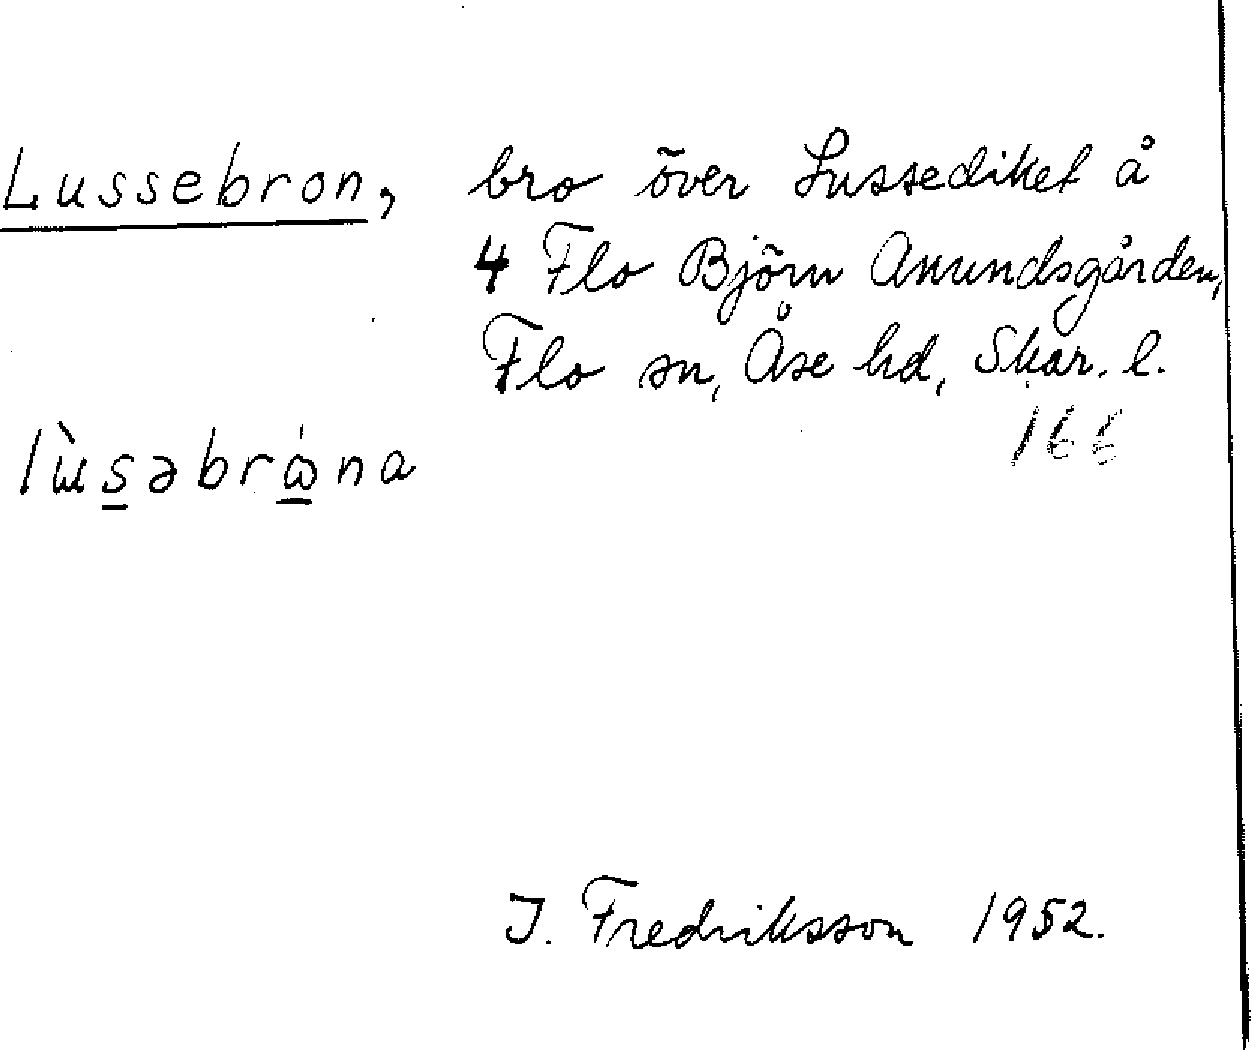 Lussebron, bro över Lussediket å
4 Flo Björn Anundsgården,
Flo sn, Åse hd, Skar. l.
166
lɯ̀s̲əbrɷ̲́na
I. Fredriksson 1952.